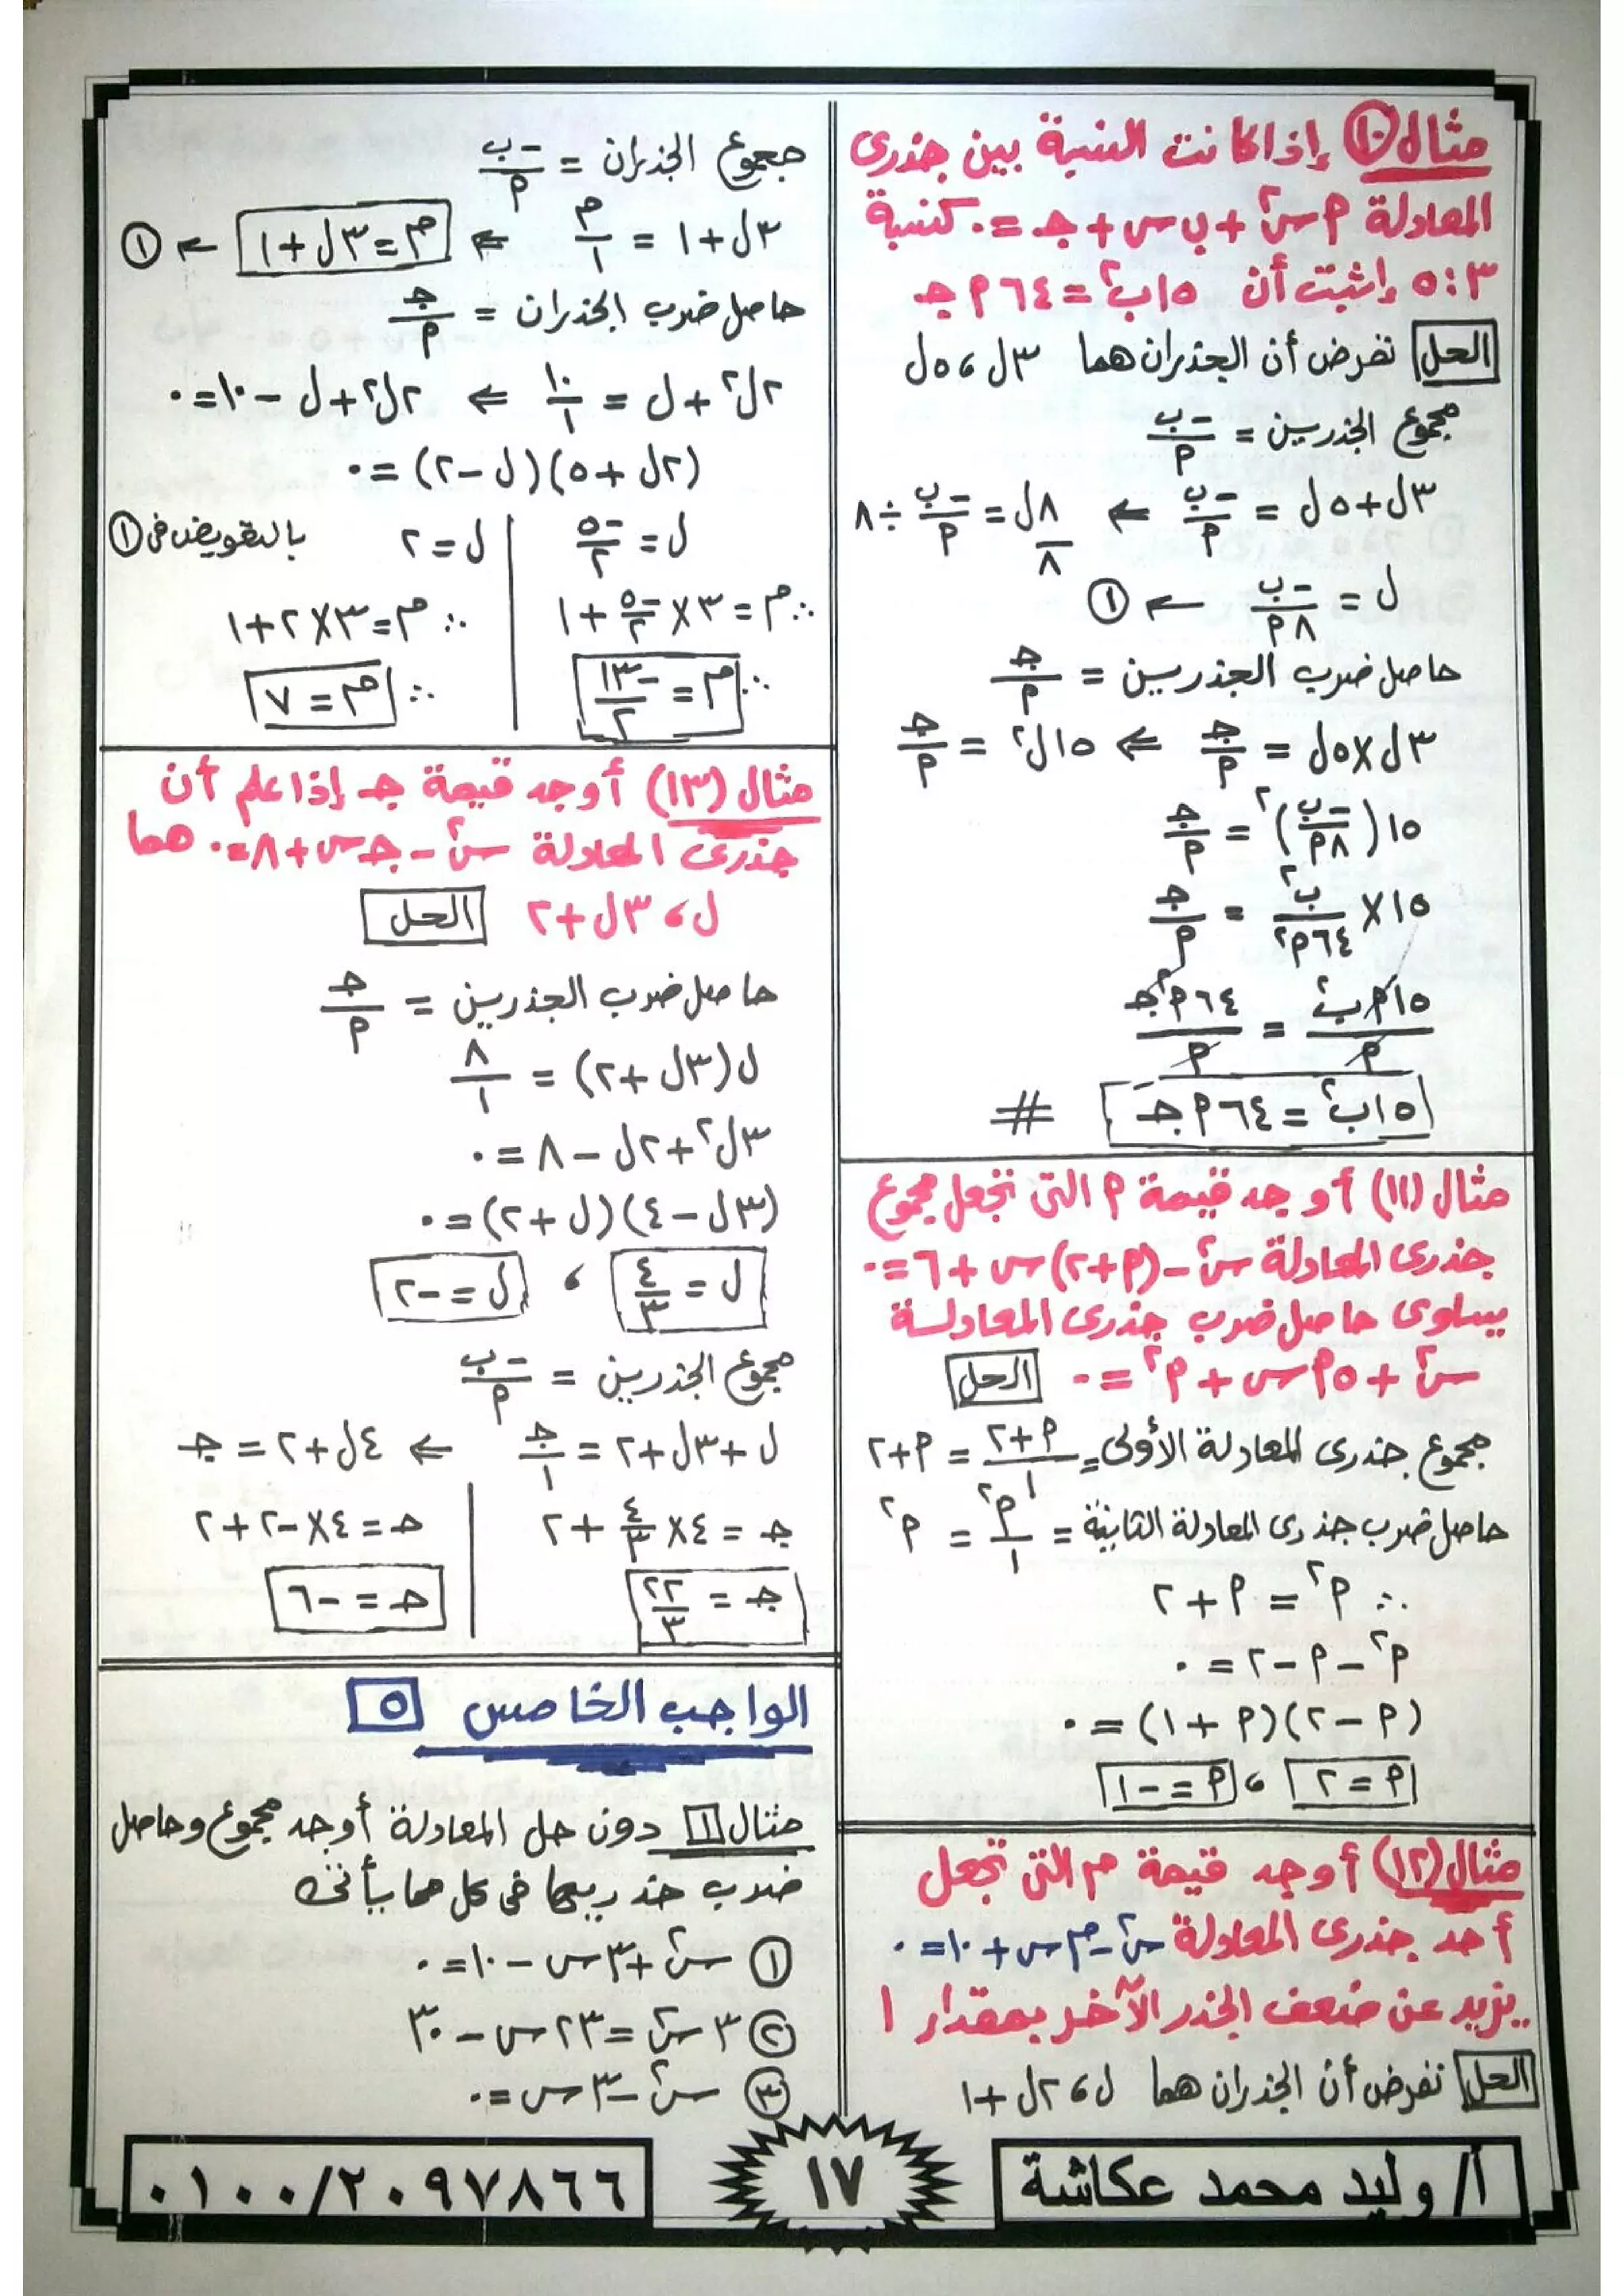 مثال ١٠ إذا كانت النسبة بين جذرى
المعادلة ٩س٢ + ب س + جـ = ٠ كنسبة
٣ : ٥ إثبت أن ١٥ب٢ = ٦٤ ٩ جـ
الحل نفرض أن الجذران هما ٣ل ، ٥ل
مجموع الجذرين = -ب/٩
٣ل + ٥ل = -ب/٩ ⇐ ٨ل/٨ = -ب/٩ ÷ ٨
ل = -ب/٨٩ ← ①
حاصل ضرب الجذرين = جـ/٩
٣ل × ٥ل = جـ/٩ ⇐ ١٥ل٢ = جـ/٩
١٥(-ب/٨٩)٢ = جـ/٩
١٥ × ب٢/٦٤٩٢ = جـ/٩
١٥٩ب٢/٩ = ٦٤٩٢جـ/٩
١٥ب٢ = ٦٤ ٩ جـ #
مثال (١١) أوجد قيمة ٩ التى تجعل مجموع
جذرى المعادلة س٢ - (٩+٢)س + ٦ = ٠
يساوى حاصل ضرب جذرى المعادلة
س٢ + ٥٩س + ٩٢ = ٠ الحل
مجموع جذرى المعادلة الأولى = ٩+٢/١ = ٩+٢
حاصل ضرب جذرى المعادلة الثانية = ٩٢/١ = ٩٢
∴ ٩٢ = ٩ + ٢
٩٢ - ٩ - ٢ = ٠
(٩ - ٢)(٩ + ١) = ٠
٩ = ٢ ، ٩ = -١
مثال (١٢) أوجد قيمة م التى تجعل
أحد جذرى المعادلة س٢ - م س + ١٠ = ٠
يزيد عن ضعف الجذر الآخر بمقدار ١
الحل نفرض أن الجذران هما ل ، ٢ل + ١
مجموع الجذران = -ب/٩
٣ل + ١ = م/١ ⇐ م = ٣ل + ١ ← ①
حاصل ضرب الجذران = جـ/٩
٢ل٢ + ل = ١٠/١ ⇐ ٢ل٢ + ل - ١٠ = ٠
(٢ل + ٥)(ل - ٢) = ٠
ل = -٥/٢ | ل = ٢ بالتعويض فى ①
∴ م = ٣ × -٥/٢ + ١ | ∴ م = ٣ × ٢ + ١
∴ م = -١٣/٢ | ∴ م = ٧
مثال (١٣) أوجد قيمة جـ إذا علم أن
جذرى المعادلة س٢ - جـ س + ٨ = ٠ هما
ل ، ٣ل + ٢ الحل
حاصل ضرب الجذرين = جـ/٩
ل(٣ل + ٢) = ٨/١
٣ل٢ + ٢ل - ٨ = ٠
(٣ل - ٤)(ل + ٢) = ٠
ل = ٤/٣ ، ل = -٢
مجموع الجذرين = -ب/٩
ل + ٣ل + ٢ = جـ/١ ⇐ ٤ل + ٢ = جـ
جـ = ٤ × ٤/٣ + ٢ | جـ = ٤ × -٢ + ٢
جـ = ٢٢/٣ | جـ = -٦
الواجب الخامس ٥
مثال ١ دون حل المعادلة أوجد مجموع وحاصل
ضرب جذريها فى كل مما يأتى
① س٢ + ٣س - ١٠ = ٠
② ٣س٢ = ٢٣س - ٣٠
③ س٢ - ٣س = ٠
أ/ وليد محمد عكاشة
١٧
٠١٠٠/٢٠٩٧٨٦٦